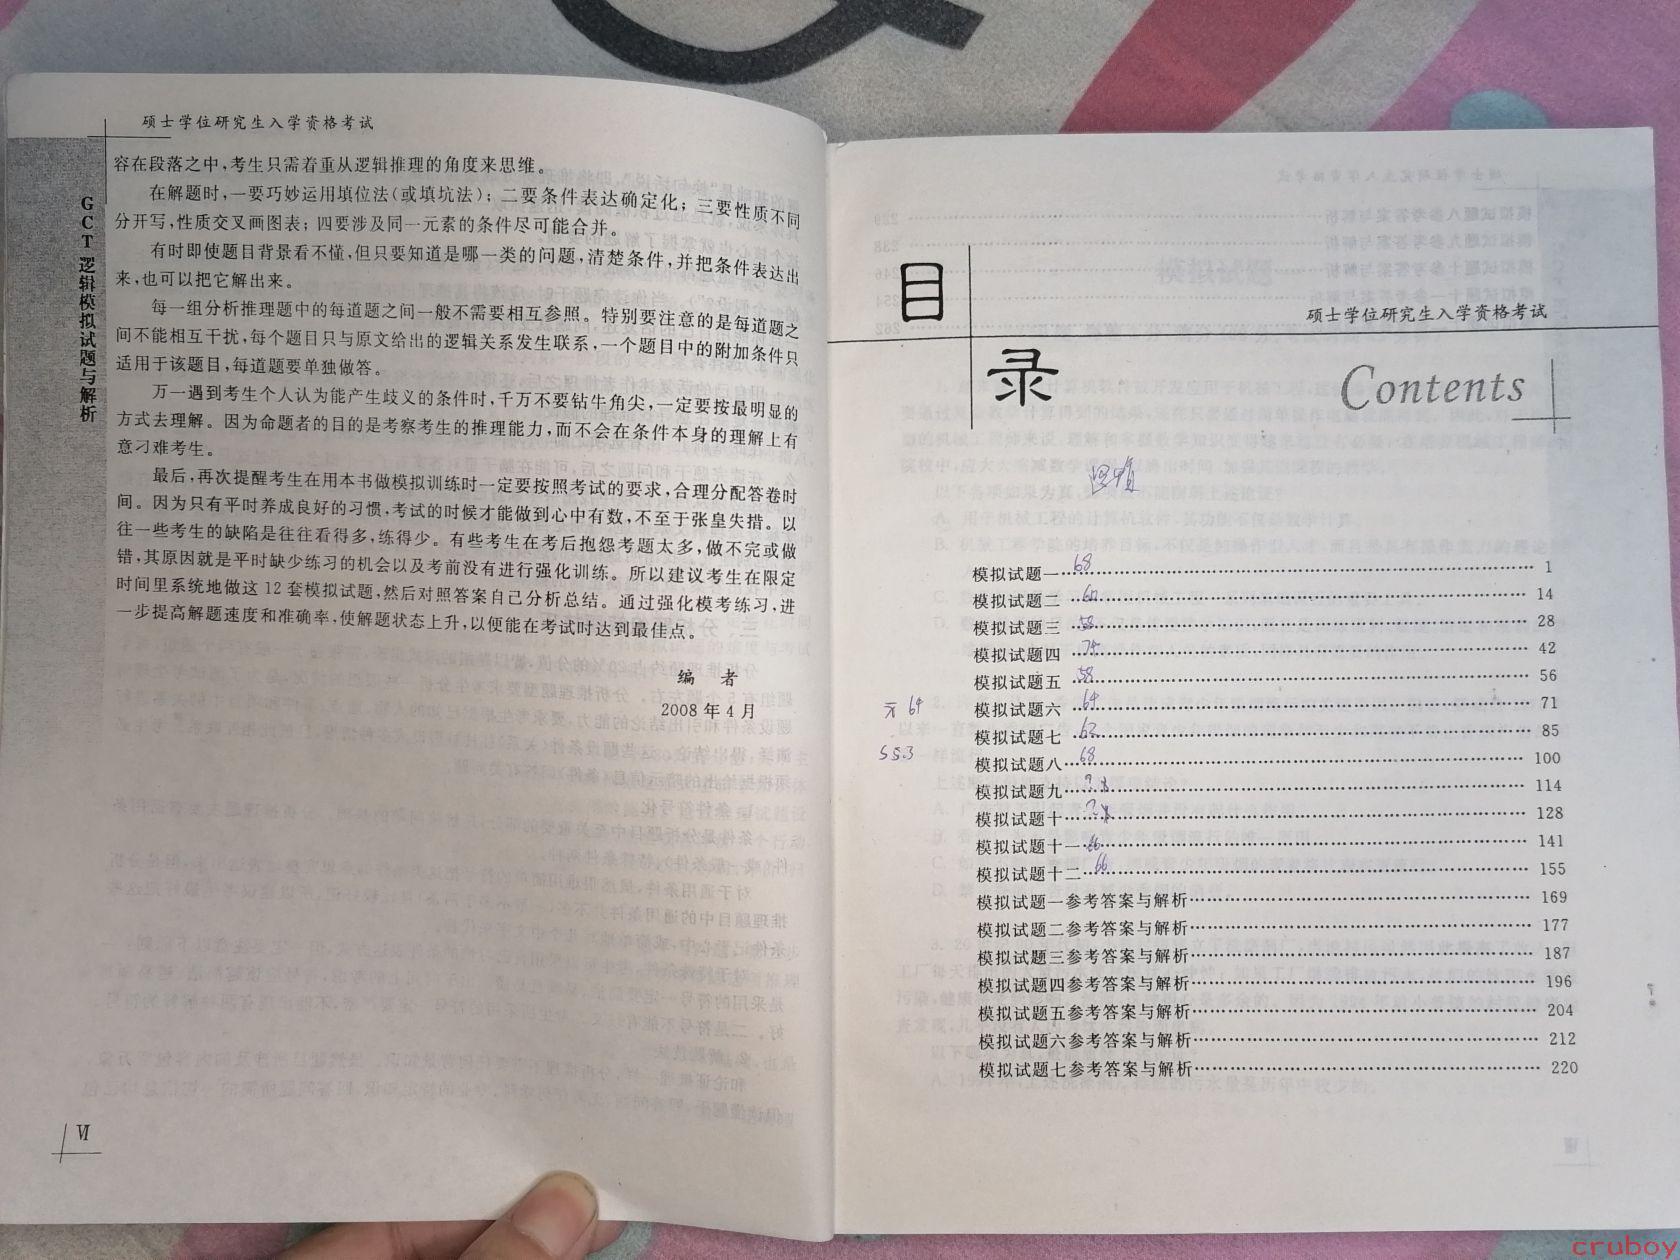 硕士学位研究生入学资格考试
GCT逻辑模拟试题与解析
容在段落之中,考生只需着重从逻辑推理的角度来思维。
在解题时,一要巧妙运用填位法(或填坑法);二要条件表达确定化;三要性质不同
分开写,性质交叉画图表;四要涉及同一元素的条件尽可能合并。
有时即使题目背景看不懂,但只要知道是哪一类的问题,清楚条件,并把条件表达出
来,也可以把它解出来。
每一组分析推理题中的每道题之间一般不需要相互参照。特别要注意的是每道题之
间不能相互干扰,每个题目只与原文给出的逻辑关系发生联系,一个题目中的附加条件只
适用于该题目,每道题要单独做答。
万一遇到考生个人认为能产生歧义的条件时,千万不要钻牛角尖,一定要按最明显的
方式去理解。因为命题者的目的是考察考生的推理能力,而不会在条件本身的理解上有
意刁难考生。
最后,再次提醒考生在用本书做模拟训练时一定要按照考试的要求,合理分配答卷时
间。因为只有平时养成良好的习惯,考试的时候才能做到心中有数,不至于张皇失措。以
往一些考生的缺陷是往往看得多,练得少。有些考生在考后抱怨考题太多,做不完或做
错,其原因就是平时缺少练习的机会以及考前没有进行强化训练。所以建议考生在限定
时间里系统地做这12套模拟试题,然后对照答案自己分析总结。通过强化模考练习,进
一步提高解题速度和准确率,使解题状态上升,以便能在考试时达到最佳点。
编 者
2008年4月
Ⅵ
目
录
硕士学位研究生入学资格考试
Contents
模拟试题一 68 1
模拟试题二 60 14
模拟试题三 58 28
模拟试题四 74 42
模拟试题五 58 56
模拟试题六 64 71
64
模拟试题七 62 85
55.3
模拟试题八 68 100
模拟试题九 ? 114
模拟试题十 ? 128
模拟试题十一 66 141
模拟试题十二 66 155
模拟试题一参考答案与解析 169
模拟试题二参考答案与解析 177
模拟试题三参考答案与解析 187
模拟试题四参考答案与解析 196
模拟试题五参考答案与解析 204
模拟试题六参考答案与解析 212
模拟试题七参考答案与解析 220
cruboy